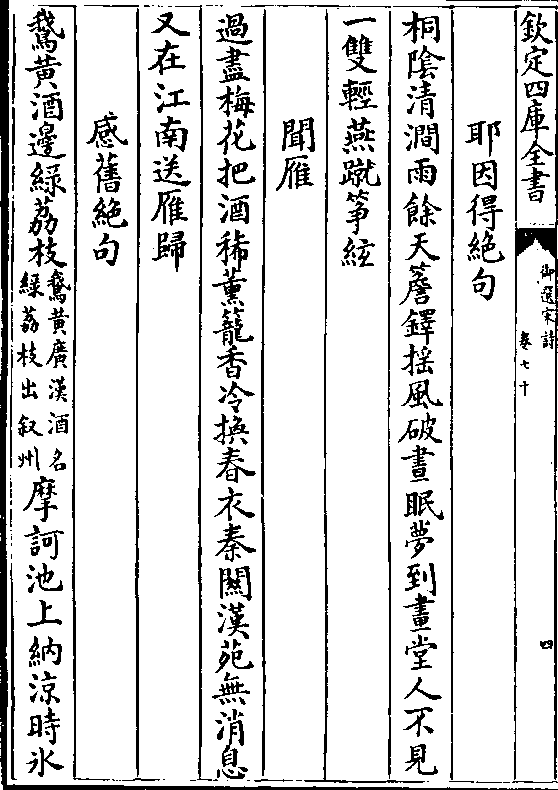 欽定四庫全書
御選宋詩
卷七十
四
耶因得絶句
桐陰清澗雨餘天簷鐸揺風破晝眠夢到畫堂人不見
一雙輕燕蹴筝絃
聞雁
過盡梅花把酒稀薰籠香冷換春衣秦關漢苑無消息
又在江南送雁歸
感舊絶句
鵞黄酒邊緑荔枝
鵞黄廣漢酒名
緑荔枝出叙州
摩訶池上納涼時氷